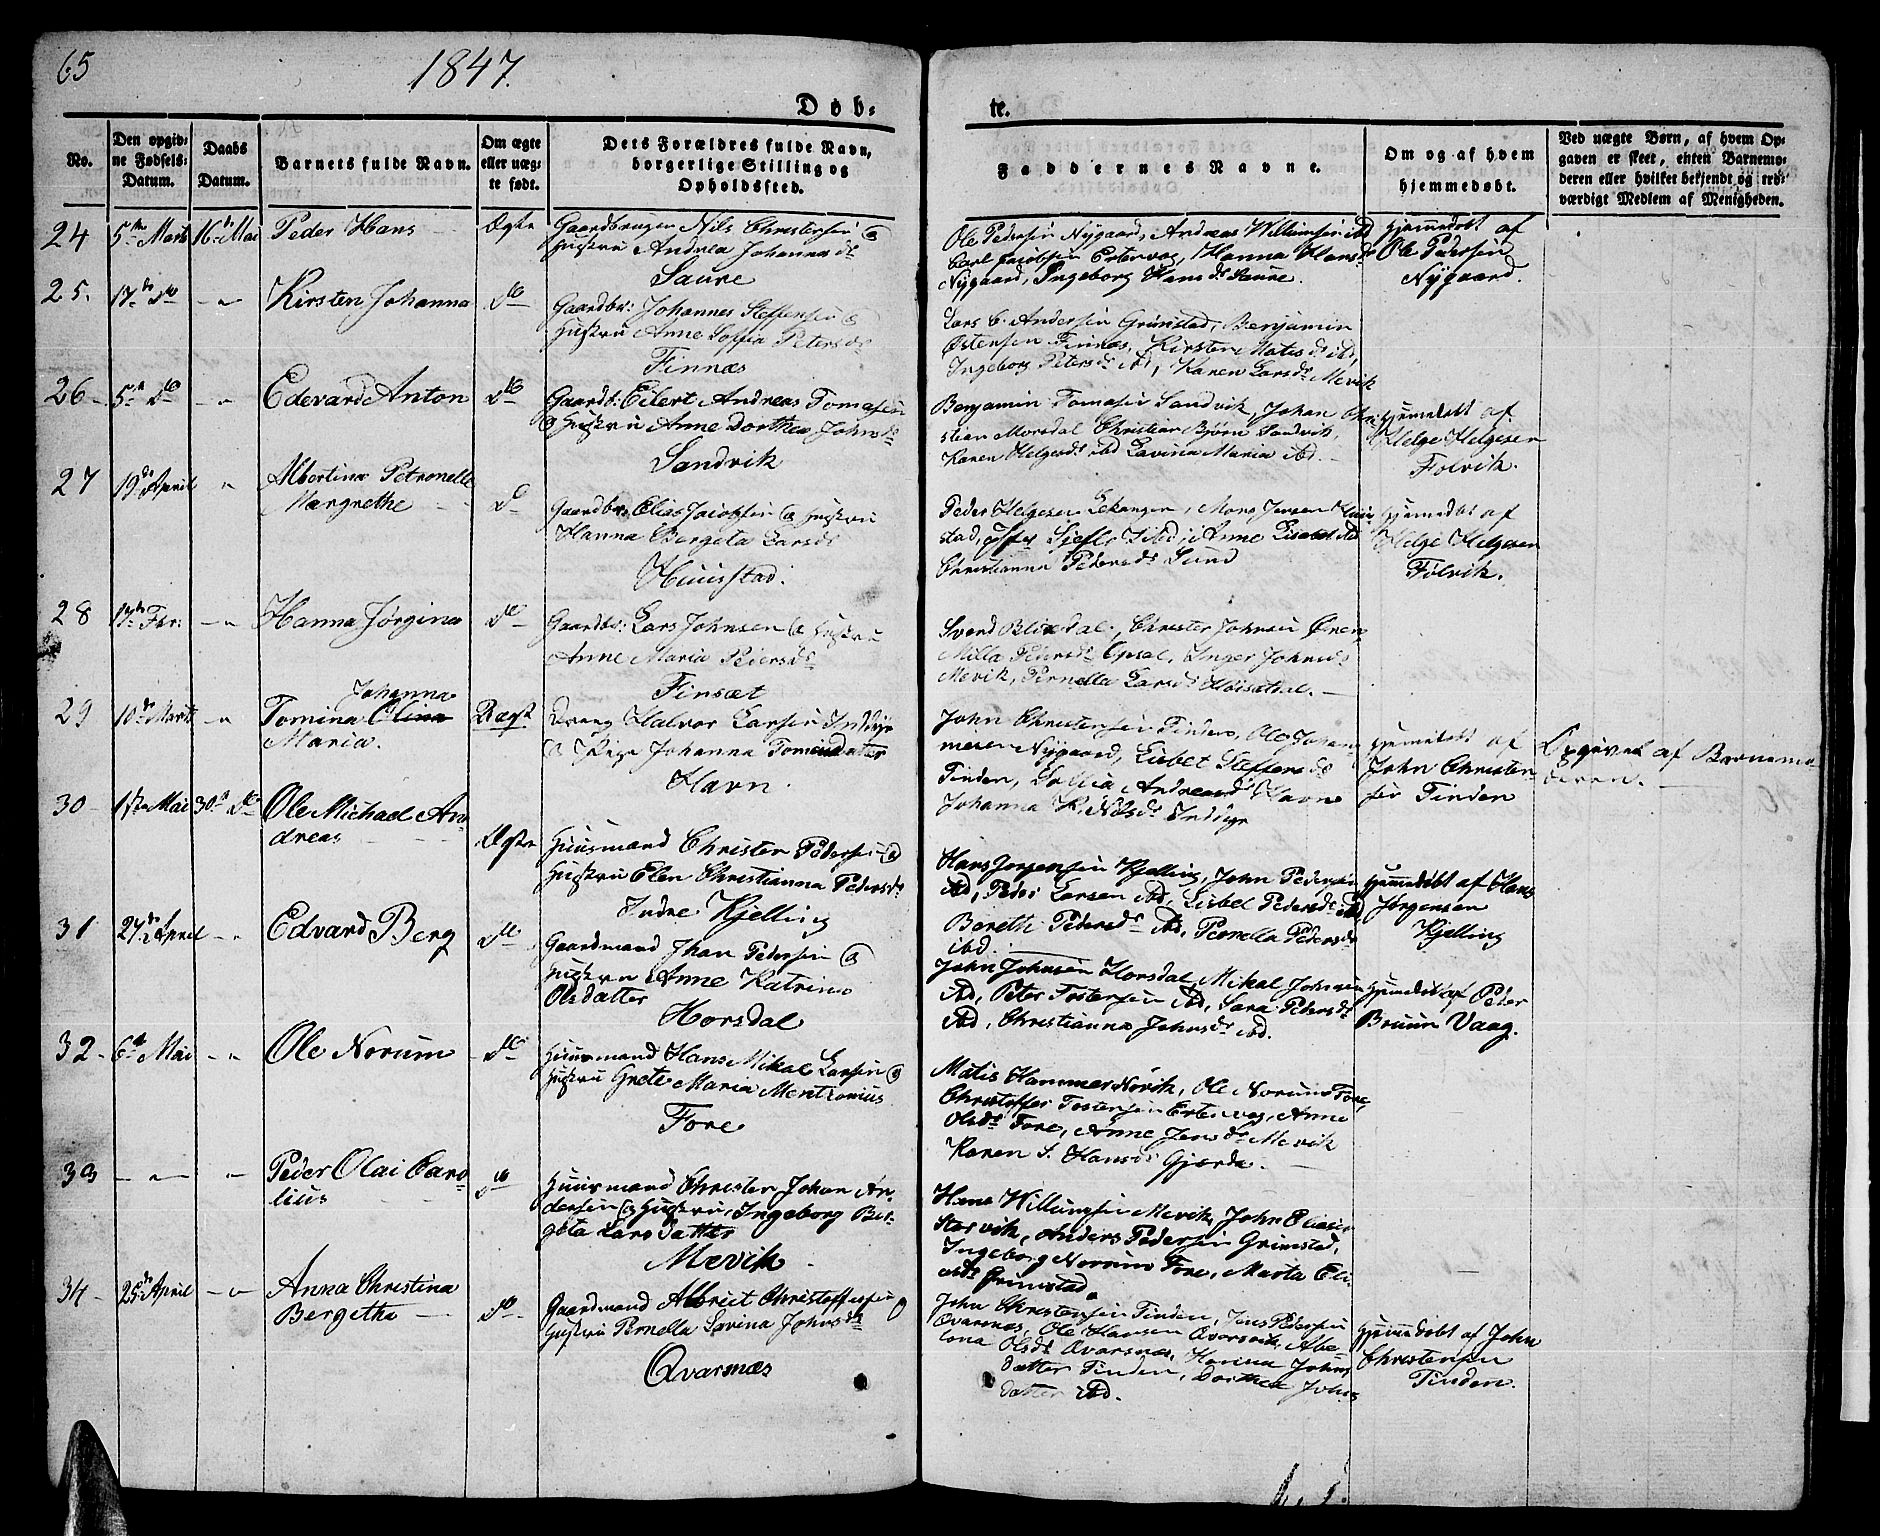 65
1847.
Døb-
te.
No.
Den opgiv-
ne Fødsels-
Datum.
Daabs
Datum.
Barnets fulde Navn.
Om ægte
eller uæg-
te født.
Dets Forældres fulde Navn,
borgerlige Stilling og
Opholdssted.
Faddernes Navne.
Om og af hvem
hjemmedøbt.
Ved uægte Børn, af hvem Op-
gaven er skeet, enten Barnemo-
deren eller hvilket bekjendt og tro-
værdigt Medlem af Menigheden.
24 5te Marts 16de Mai Peder Hans Ægte
Gaardbruger Nils Christersen &
Hustru Andrea Johanna ds
Saure
Ole Pedersen Nygaard, Andreas Willumsen ibd
Carl Jacobsen Estervag, Hanna Hansds
Nygaard, Ingeborg Hansds Saure.
Hjemmedøbt af
Ole Pedersen
Nygaard.
25. 17de do Kirsten Johanna do
Gaardbr: Johannes Steffensen &
Hustru Anne Soffia Petersds
Finnæs
Lars C. Andersen Grimstad, Benjamin
Østensen Finnæs, Kirsten Matisds ibd,
Ingeborg Petersds ibd, Karen Larsds Mevik
26 5te do Edevard Anton do
Gaardb: Eilert Andreas Tomasen
& Hustru Anne Dorthea Johnsds
Sandvik
Benjamin Tomasen Sandvik, Johan Chri-
stian Morsdal Christian Bjørn Sandvik,
Karen Helgesds ibd Lavina Maria ibd.
Hjemmedøbt af
Helge Helgesen
Folvik.
27 19de April Albertina Petronelle
Margrethe do
Gaardbr: Elias Jacobsen & Hustru
Hanna Bergeta Larsds
Huusstad.
Peder Helgesen Lekanger, Mons Jensen Huus-
stad, ibd, Anne Lisabet ibd
Christianna Pedersds Sund
Hjemmedøbt af
Helge Helgesen
Folvik.
28 17de Febr: Hanna Jørgina do
Gaardbr: Lars Johnsen & Hustru
Anne Maria Peiersds
Finsæt
Svend Blixdal, Christer Johnsen Ørnes
Milla Petersds Opsal, Inger Johnsds
Mevik, Pernella Larsds Høisethal.
29 10de Marts Johanna
Tomina Olina
Maria. Uægte
Dreng Halvor Larsen Inddyr
& Pige Johanna Tomasdatter
Havn.
John Christensen Tinden, Ole Johan
meier Nygaard, Lisbet Steffensds
Tinden, Soffia Andreasds Havn
Johanna K. Nilsds Inddyr
Hjemmedøbt af
John Christen-
sen Tinden
Opgivet af Barnemo-
deren.
30 1ste Mai 30te do Ole Michael An-
dreas Ægte
Huusmand Christen Pedersen &
Hustru Elen Christianna Pedersds
Indre Kjelling
Hans Jørgensen Kjelling, John Pedersen
ibd, Peder Larsen ibd, Lisbet Pedersds ibd,
Bereth Pedersds ibd, Pernella Pedersds
ibd.
Hjemmedøbt af Hans
Jørgensen
Kjelling
31 27de April Edvard Berg do
Gaardmand Jhan Pedersen &
Hustru Anne Katrina
Olsdatter
Horsdal
John Johnsen Horsdal, Mikal Johnsen
ibd, Peter Tostensen ibd, Sara Petersds
ibd, Christianna Johnsds ibd.
Hjemmedøbt af Peder
Bruun Vaag.
32 6te Mai Ole Norum do
Huusmand Hans Mikal Larsen &
Hustru Grete Maria Mentzonius
Fore
Matis Hammer Nøvik, Ole Norum Fore,
Christoffer Tostensen Estervag, Anne
Olsds Fore, Anne Jensds Mevik
Karen S. Hansds Gjærde.
33 Peder Olai Caro-
lius do
Huusmand Christen Johan An-
dersen & Hustru, Ingeborg Ber-
geta Larsdatter
Mevik
Hans Willumsen Mevik, John Eliasen
Storvik, Anders Pedersen Grimstad,
Ingeborg Norum Fore, Marta Eli-
asds Grimstad.
34 25de April Anna Christina
Bergetha do
Gaardmand Albriet Christoffersen &
Hustru Pernella Lavina Johnsds
Qvarsnæs
John Christensen Tinden, Jens Pedersen
Qvarsnæs, Ole Hansen Qvarsvik, Abe-
lona Olsds Qvarsnæs, Harina Johns
datter Tinden, Dorthea Johns
datter ibd.
Hjemmedøbt af John
Christensen
Tinden.